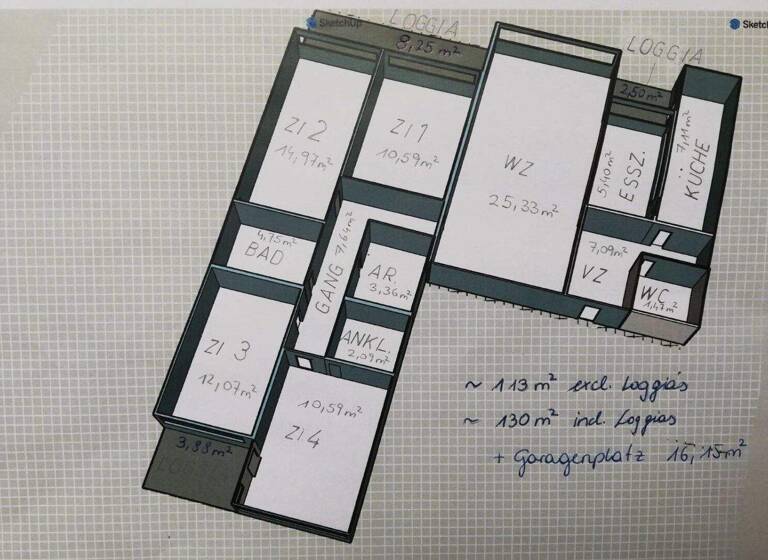 SketchUp
Sketch
LOGGIA
8,25 m²
LOGGIA
2,50 m²
ZI 2
14,97m²
ZI 1
10,59m²
WZ
25,33m²
5,40m²
ESSZ.
7,11m²
KÜCHE
4,75m²
BAD
GANG 7,64m²
AR.
3,36m²
7,09m²
VZ
WC
1,47m²
ANKL.
2,09m²
ZI 3
12,07m²
10,59m²
ZI 4
3,88m²
LOGGIA
~ 113 m² excl. Loggias
~ 130 m² incl. Loggias
+ Garagenplatz 16,15m²